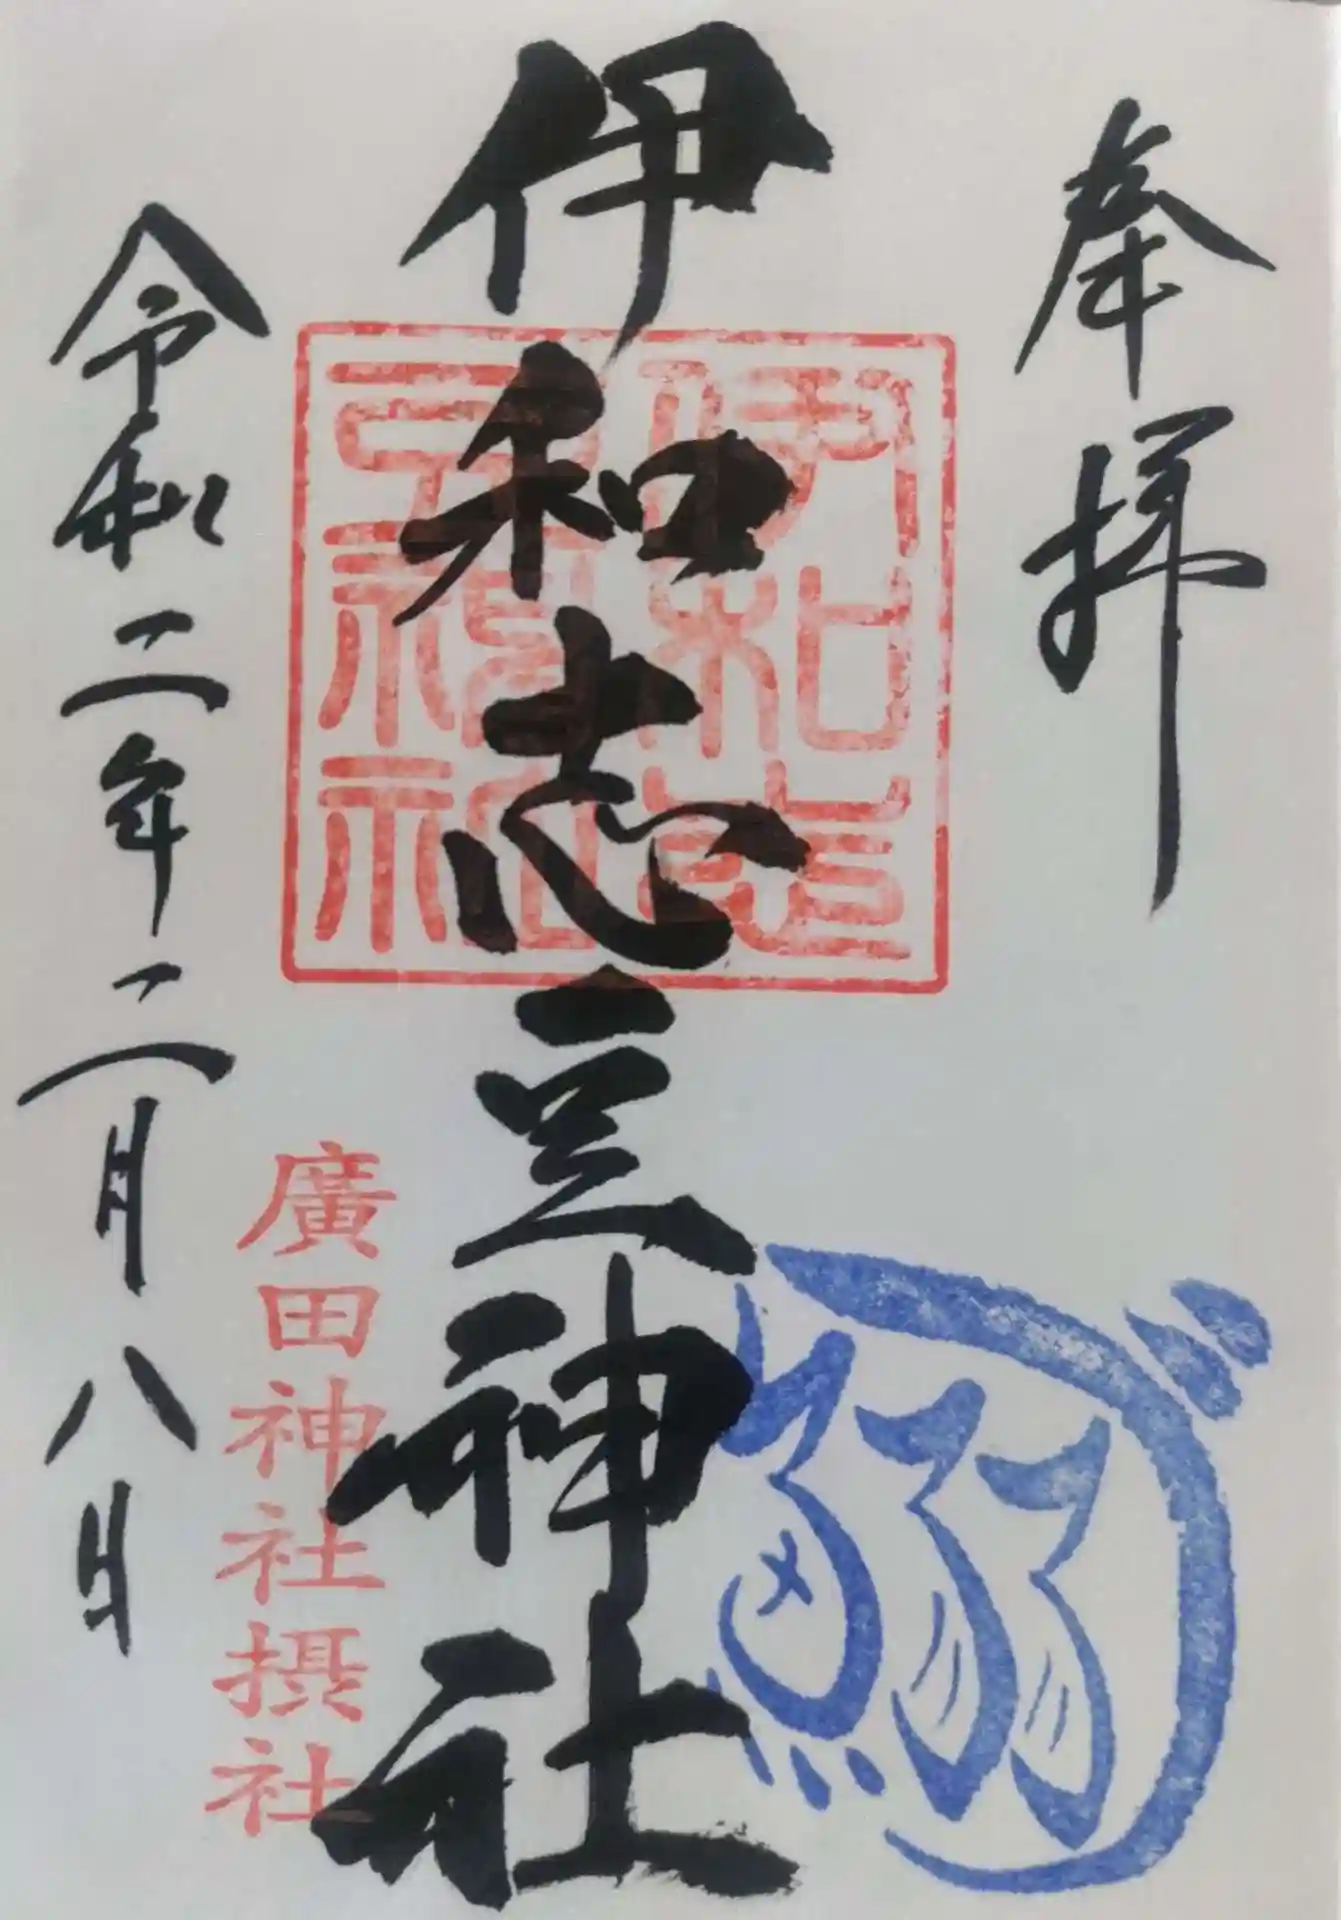 奉拝
鰯づ
伊和志豆神社
伊和志
豆神社
廣田神社摂社
令和二年二月八日